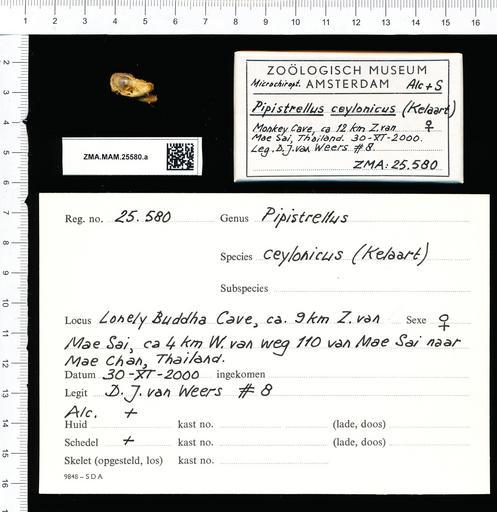 ZOÖLOGISCH MUSEUM
Microchiropt. AMSTERDAM Alc + S
Pipistrellus ceylonicus (Kelaart)
Monkey Cave, ca 12 km Z. van ♀
Mae Sai, Thailand. 30-XI-2000.
Leg. D.J. van Weers #8
ZMA: 25.580
ZMA.MAM.25580.a
Reg. no. 25.580 Genus Pipistrellus
Species ceylonicus (Kelaart)
Subspecies
Locus Lonely Buddha Cave, ca. 9 km Z. van Sexe ♀
Mae Sai, ca 4 km W. van weg 110 van Mae Sai naar
Mae Chan, Thailand.
Datum 30-XI-2000 ingekomen
Legit D.J. van Weers #8
Alc. +
Huid kast no. (lade, doos)
Schedel + kast no. (lade, doos)
Skelet (opgesteld, los) kast no.
9848 – S D A